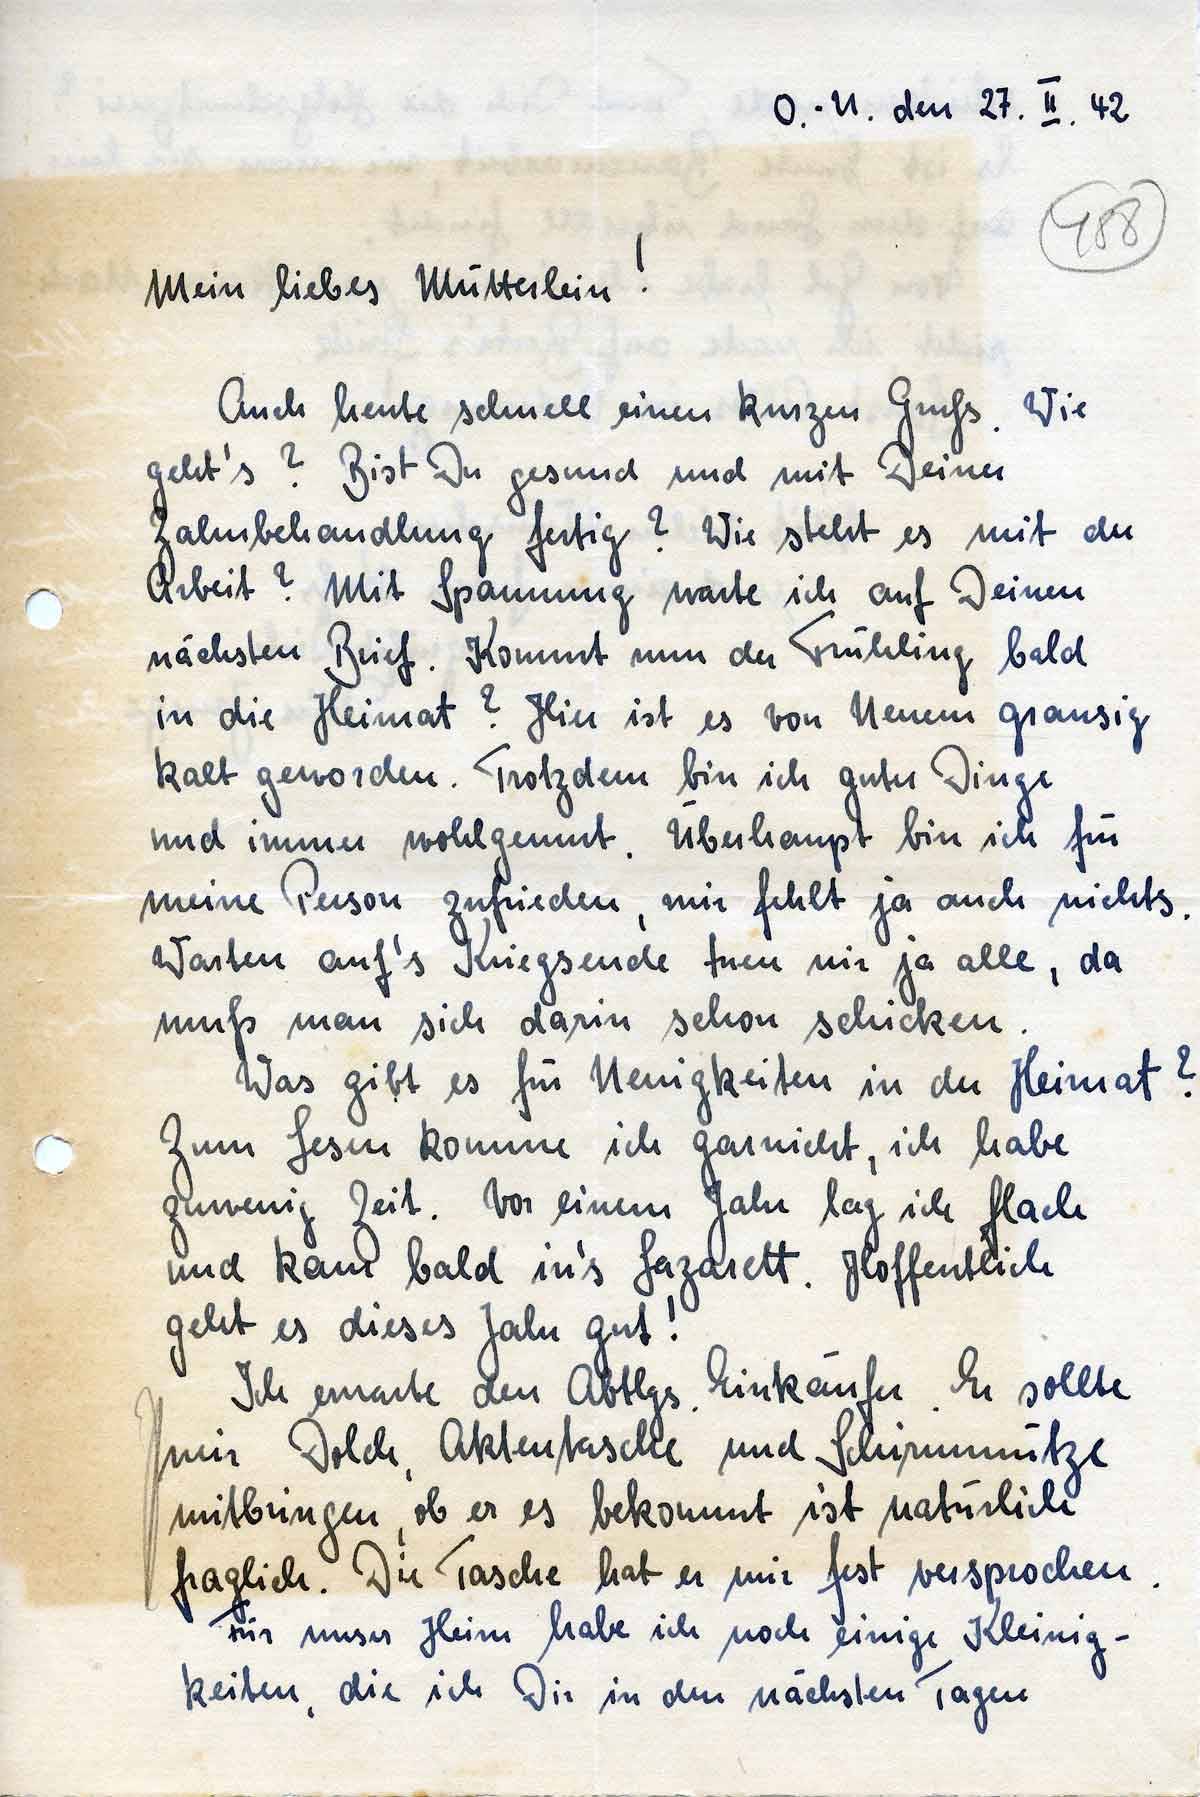 O.-U. den 27. II. 42
488
Mein liebes Mütterlein!
Auch heute schnell einen kurzen Gruß. Wie
geht's? Bist Du gesund und mit Deiner
Zahnbehandlung fertig? Wie steht es mit der
Arbeit? Mit Spannung warte ich auf Deinen
nächsten Brief. Kommt nun der Frühling bald
in die Heimat? Hier ist es von Neuem grausig
kalt geworden. Trotzdem bin ich guter Dinge
und immer wohlgemut. Überhaupt bin ich für
meine Person zufrieden, mir fehlt ja auch nichts.
Warten auf's Kriegsende tuen wir ja alle, da
muß man sich darin schon schicken.
Was gibt es für Neuigkeiten in der Heimat?
Zum Lesen komme ich garnicht, ich habe
zuwenig Zeit. Vor einem Jahr lag ich flach
und kam bald in's Lazarett. Hoffentlich
geht es dieses Jahr gut!
Ich erwarte den Abtlgs. Einkäufer. Er sollte
mir Dolch, Aktentasche und Schirmmütze
mitbringen, ob er es bekommt ist natürlich
fraglich. Die Tasche hat er mir fest versprochen.
Für unser Heim habe ich noch einige Kleinig-
keiten, die ich Dir in den nächsten Tagen